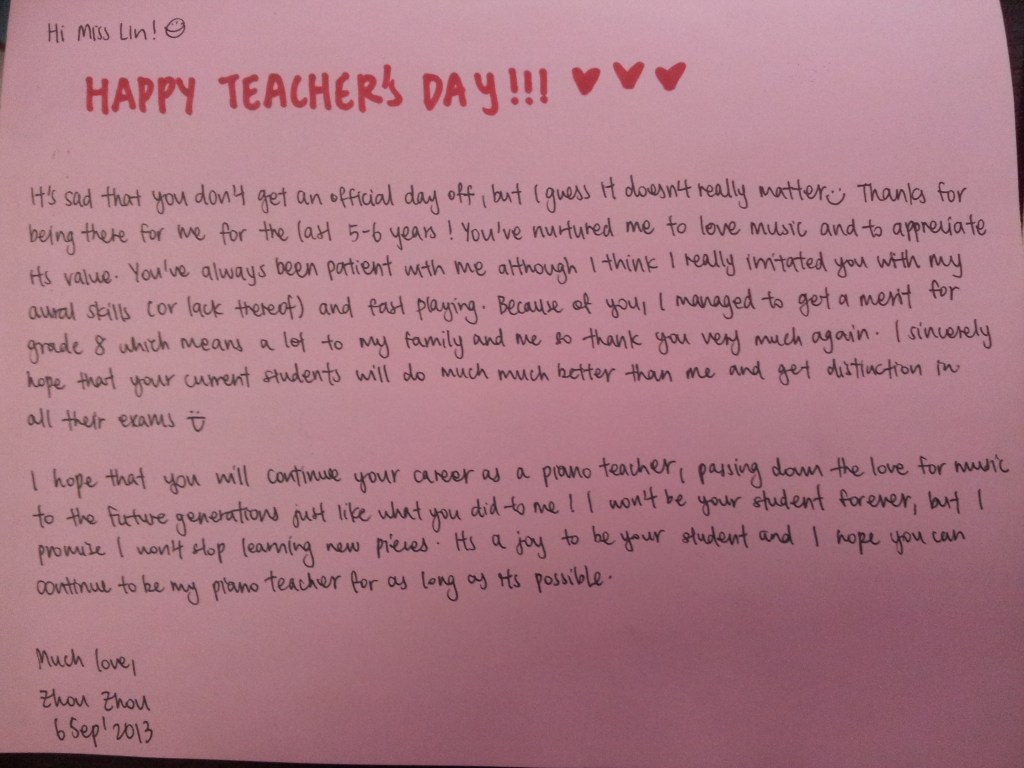 Hi Miss Lin! ☺
HAPPY TEACHER'S DAY!!! ♥ ♥ ♥
It's sad that you don't get an official day off, but I guess it doesn't really matter☺ Thanks for
being there for me for the last 5-6 years! You've nurtured me to love music and to appreciate
its value. You've always been patient with me although I think I really irritated you with my
aural skills (or lack thereof) and fast playing. Because of you, I managed to get a merit for
grade 8 which means a lot to my family and me so thank you very much again. I sincerely
hope that your current students will do much much better than me and get distinction in
all their exams ☺
I hope that you will continue your career as a piano teacher, passing down the love for music
to the future generations just like what you did to me! I won't be your student forever, but I
promise I won't stop learning new pieces. Its a joy to be your student and I hope you can
continue to be my piano teacher for as long as its possible.
Much love,
Zhou Zhou
6 Sep' 2013